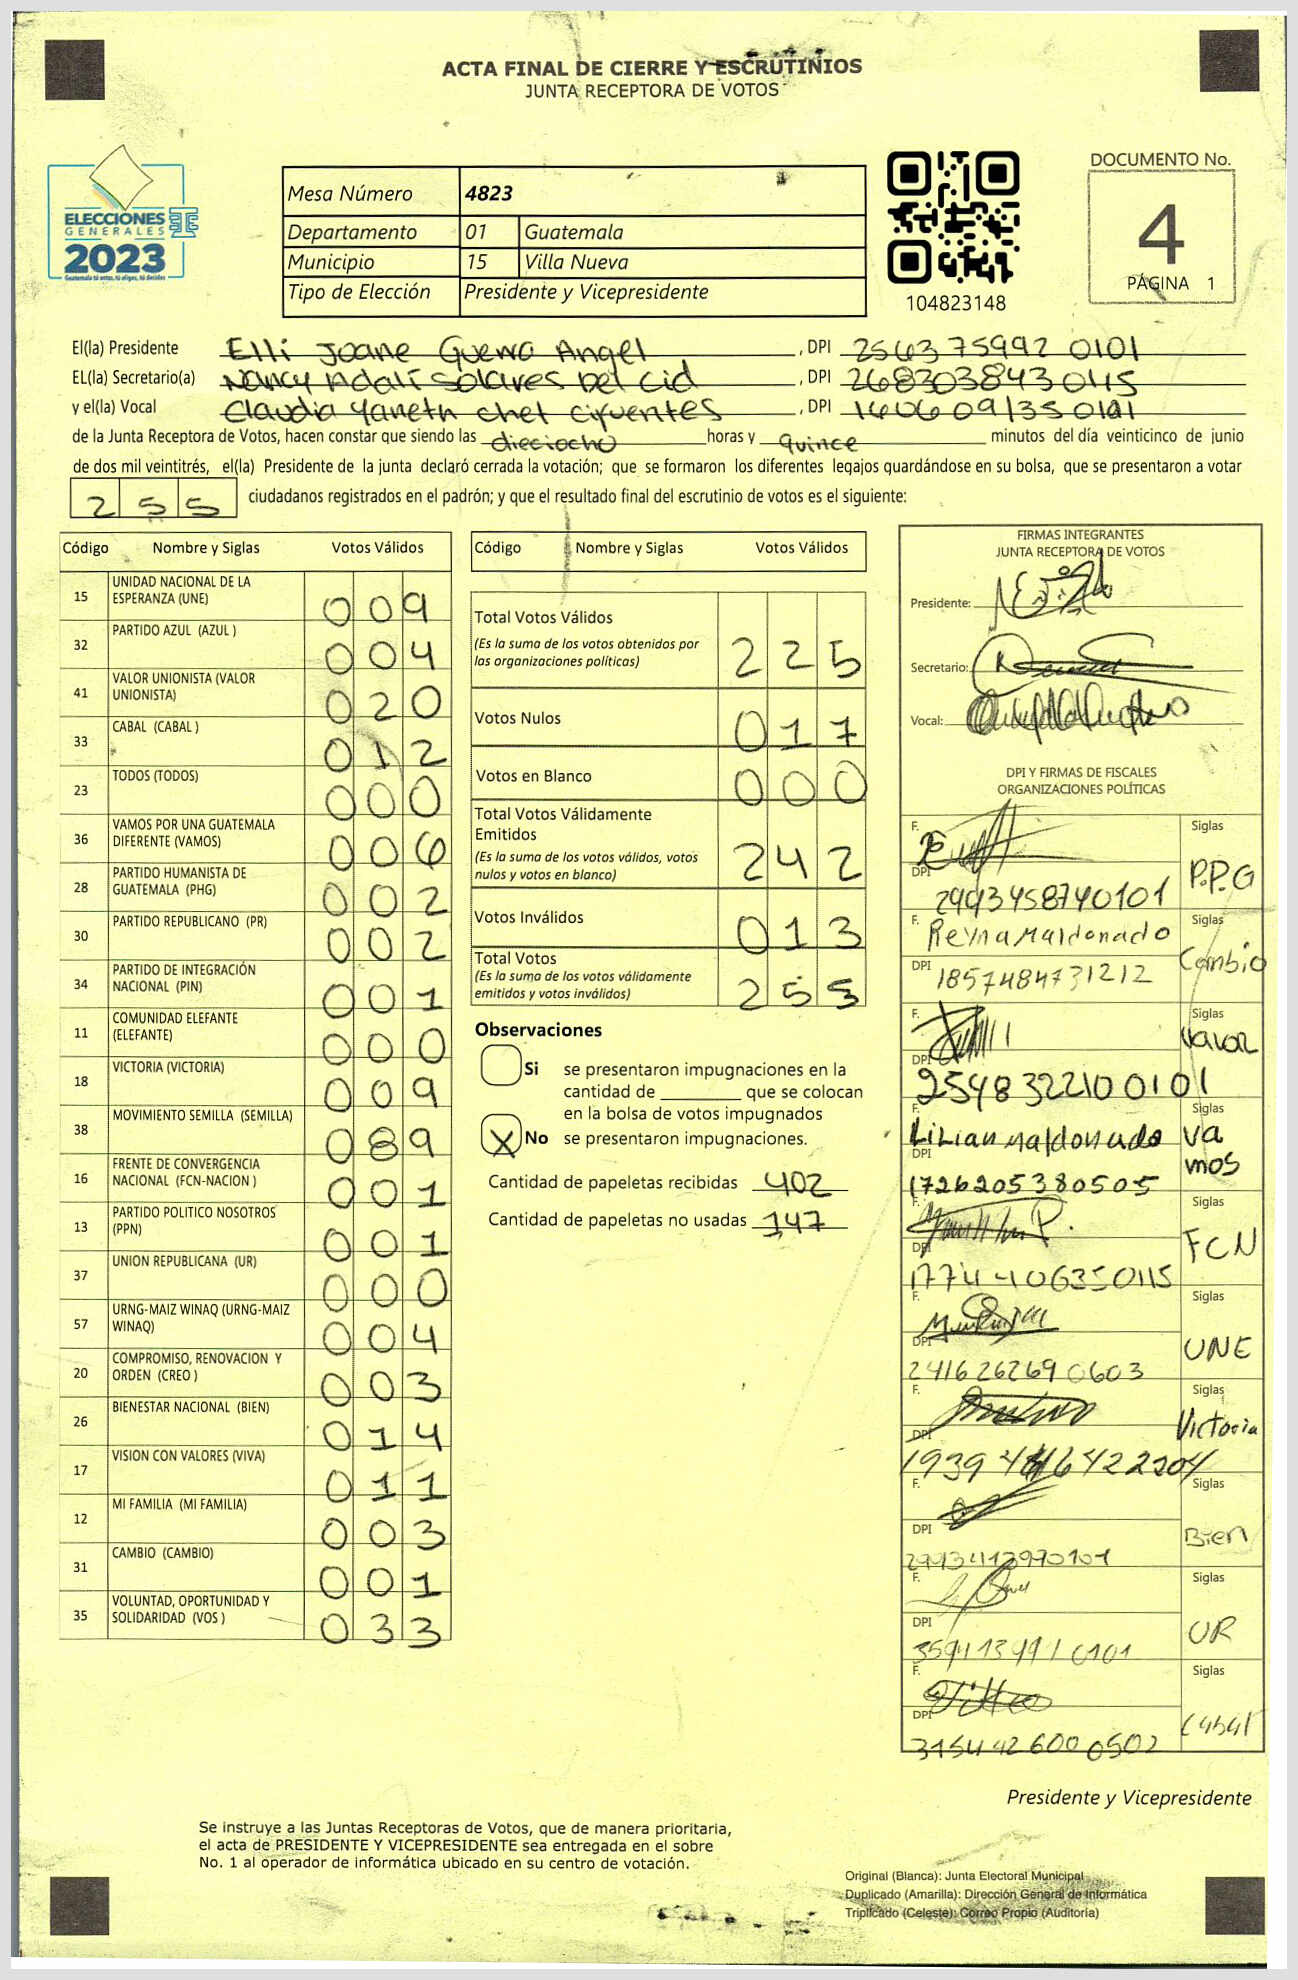 ACTA FINAL DE CIERRE Y ESCRUTINIOS
JUNTA RECEPTORA DE VOTOS
ELECCIONES
GENERALES
2023
Guatemala tú antes, tú eliges, tú decides
Mesa Número 4823
Departamento 01 Guatemala
Municipio 15 Villa Nueva
Tipo de Elección Presidente y Vicepresidente
104823148
DOCUMENTO No.
4
PÁGINA 1
El(la) Presidente Elli Joane Guerra Angel, DPI 2563 75992 0101
EL(la) Secretario(a) Nancy Adalí Solares Del Cid, DPI 2683038430115
y el(la) Vocal Claudia Yaneth Chet Cifuentes, DPI
de la Junta Receptora de Votos, hacen constar que siendo las dieciocho horas y quince minutos del día veinticinco de junio
de dos mil veintitrés, el(la) Presidente de la junta declaró cerrada la votación; que se formaron los diferentes legajos guardándose en su bolsa, que se presentaron a votar
255 ciudadanos registrados en el padrón; y que el resultado final del escrutinio de votos es el siguiente:
Código Nombre y Siglas Votos Válidos
15 UNIDAD NACIONAL DE LA ESPERANZA (UNE) 009
32 PARTIDO AZUL (AZUL ) 004
41 VALOR UNIONISTA (VALOR UNIONISTA) 020
33 CABAL (CABAL ) 012
23 TODOS (TODOS) 000
36 VAMOS POR UNA GUATEMALA DIFERENTE (VAMOS) 006
28 PARTIDO HUMANISTA DE GUATEMALA (PHG) 002
30 PARTIDO REPUBLICANO (PR) 002
34 PARTIDO DE INTEGRACIÓN NACIONAL (PIN) 001
11 COMUNIDAD ELEFANTE (ELEFANTE) 000
18 VICTORIA (VICTORIA) 009
38 MOVIMIENTO SEMILLA (SEMILLA) 089
16 FRENTE DE CONVERGENCIA NACIONAL (FCN-NACION ) 001
13 PARTIDO POLITICO NOSOTROS (PPN) 001
37 UNION REPUBLICANA (UR) 000
57 URNG-MAIZ WINAQ (URNG-MAIZ WINAQ) 004
20 COMPROMISO, RENOVACION Y ORDEN (CREO ) 003
26 BIENESTAR NACIONAL (BIEN) 014
17 VISION CON VALORES (VIVA) 011
12 MI FAMILIA (MI FAMILIA) 003
31 CAMBIO (CAMBIO) 001
35 VOLUNTAD, OPORTUNIDAD Y SOLIDARIDAD (VOS ) 033
Código Nombre y Siglas Votos Válidos
Total Votos Válidos 225
(Es la suma de los votos obtenidos por
las organizaciones políticas)
Votos Nulos 017
Votos en Blanco 000
Total Votos Válidamente
Emitidos 242
(Es la suma de los votos válidos, votos
nulos y votos en blanco)
Votos Inválidos 013
Total Votos 255
(Es la suma de los votos válidamente
emitidos y votos inválidos)
Observaciones
Si se presentaron impugnaciones en la
cantidad de ________ que se colocan
en la bolsa de votos impugnados
X No se presentaron impugnaciones.
Cantidad de papeletas recibidas 402
Cantidad de papeletas no usadas 147
FIRMAS INTEGRANTES
JUNTA RECEPTORA DE VOTOS
Presidente:
Secretario:
Vocal:
DPI Y FIRMAS DE FISCALES
ORGANIZACIONES POLÍTICAS
F. Siglas P.P.G
DPI 2993458740101
F. Reyna Maldonado Siglas Cambio
DPI 1857484731212
F. Siglas Valor
DPI 2548322100101
F. Lilian Maldonado Siglas Vamos
DPI 1726205380505
F. Siglas FCN
DPI 1774406350115
F. Siglas UNE
DPI 2416262690603
F. Siglas Victoria
DPI
F. Siglas Bien
DPI
F. Siglas UR
DPI
F. Siglas Cabal
DPI 3154426000502
Presidente y Vicepresidente
Se instruye a las Juntas Receptoras de Votos, que de manera prioritaria,
el acta de PRESIDENTE Y VICEPRESIDENTE sea entregada en el sobre
No. 1 al operador de informática ubicado en su centro de votación.
Original (Blanca): Junta Electoral Municipal
Duplicado (Amarilla): Dirección General de Informática
Triplicado (Celeste): Correo Propio (Auditoría)